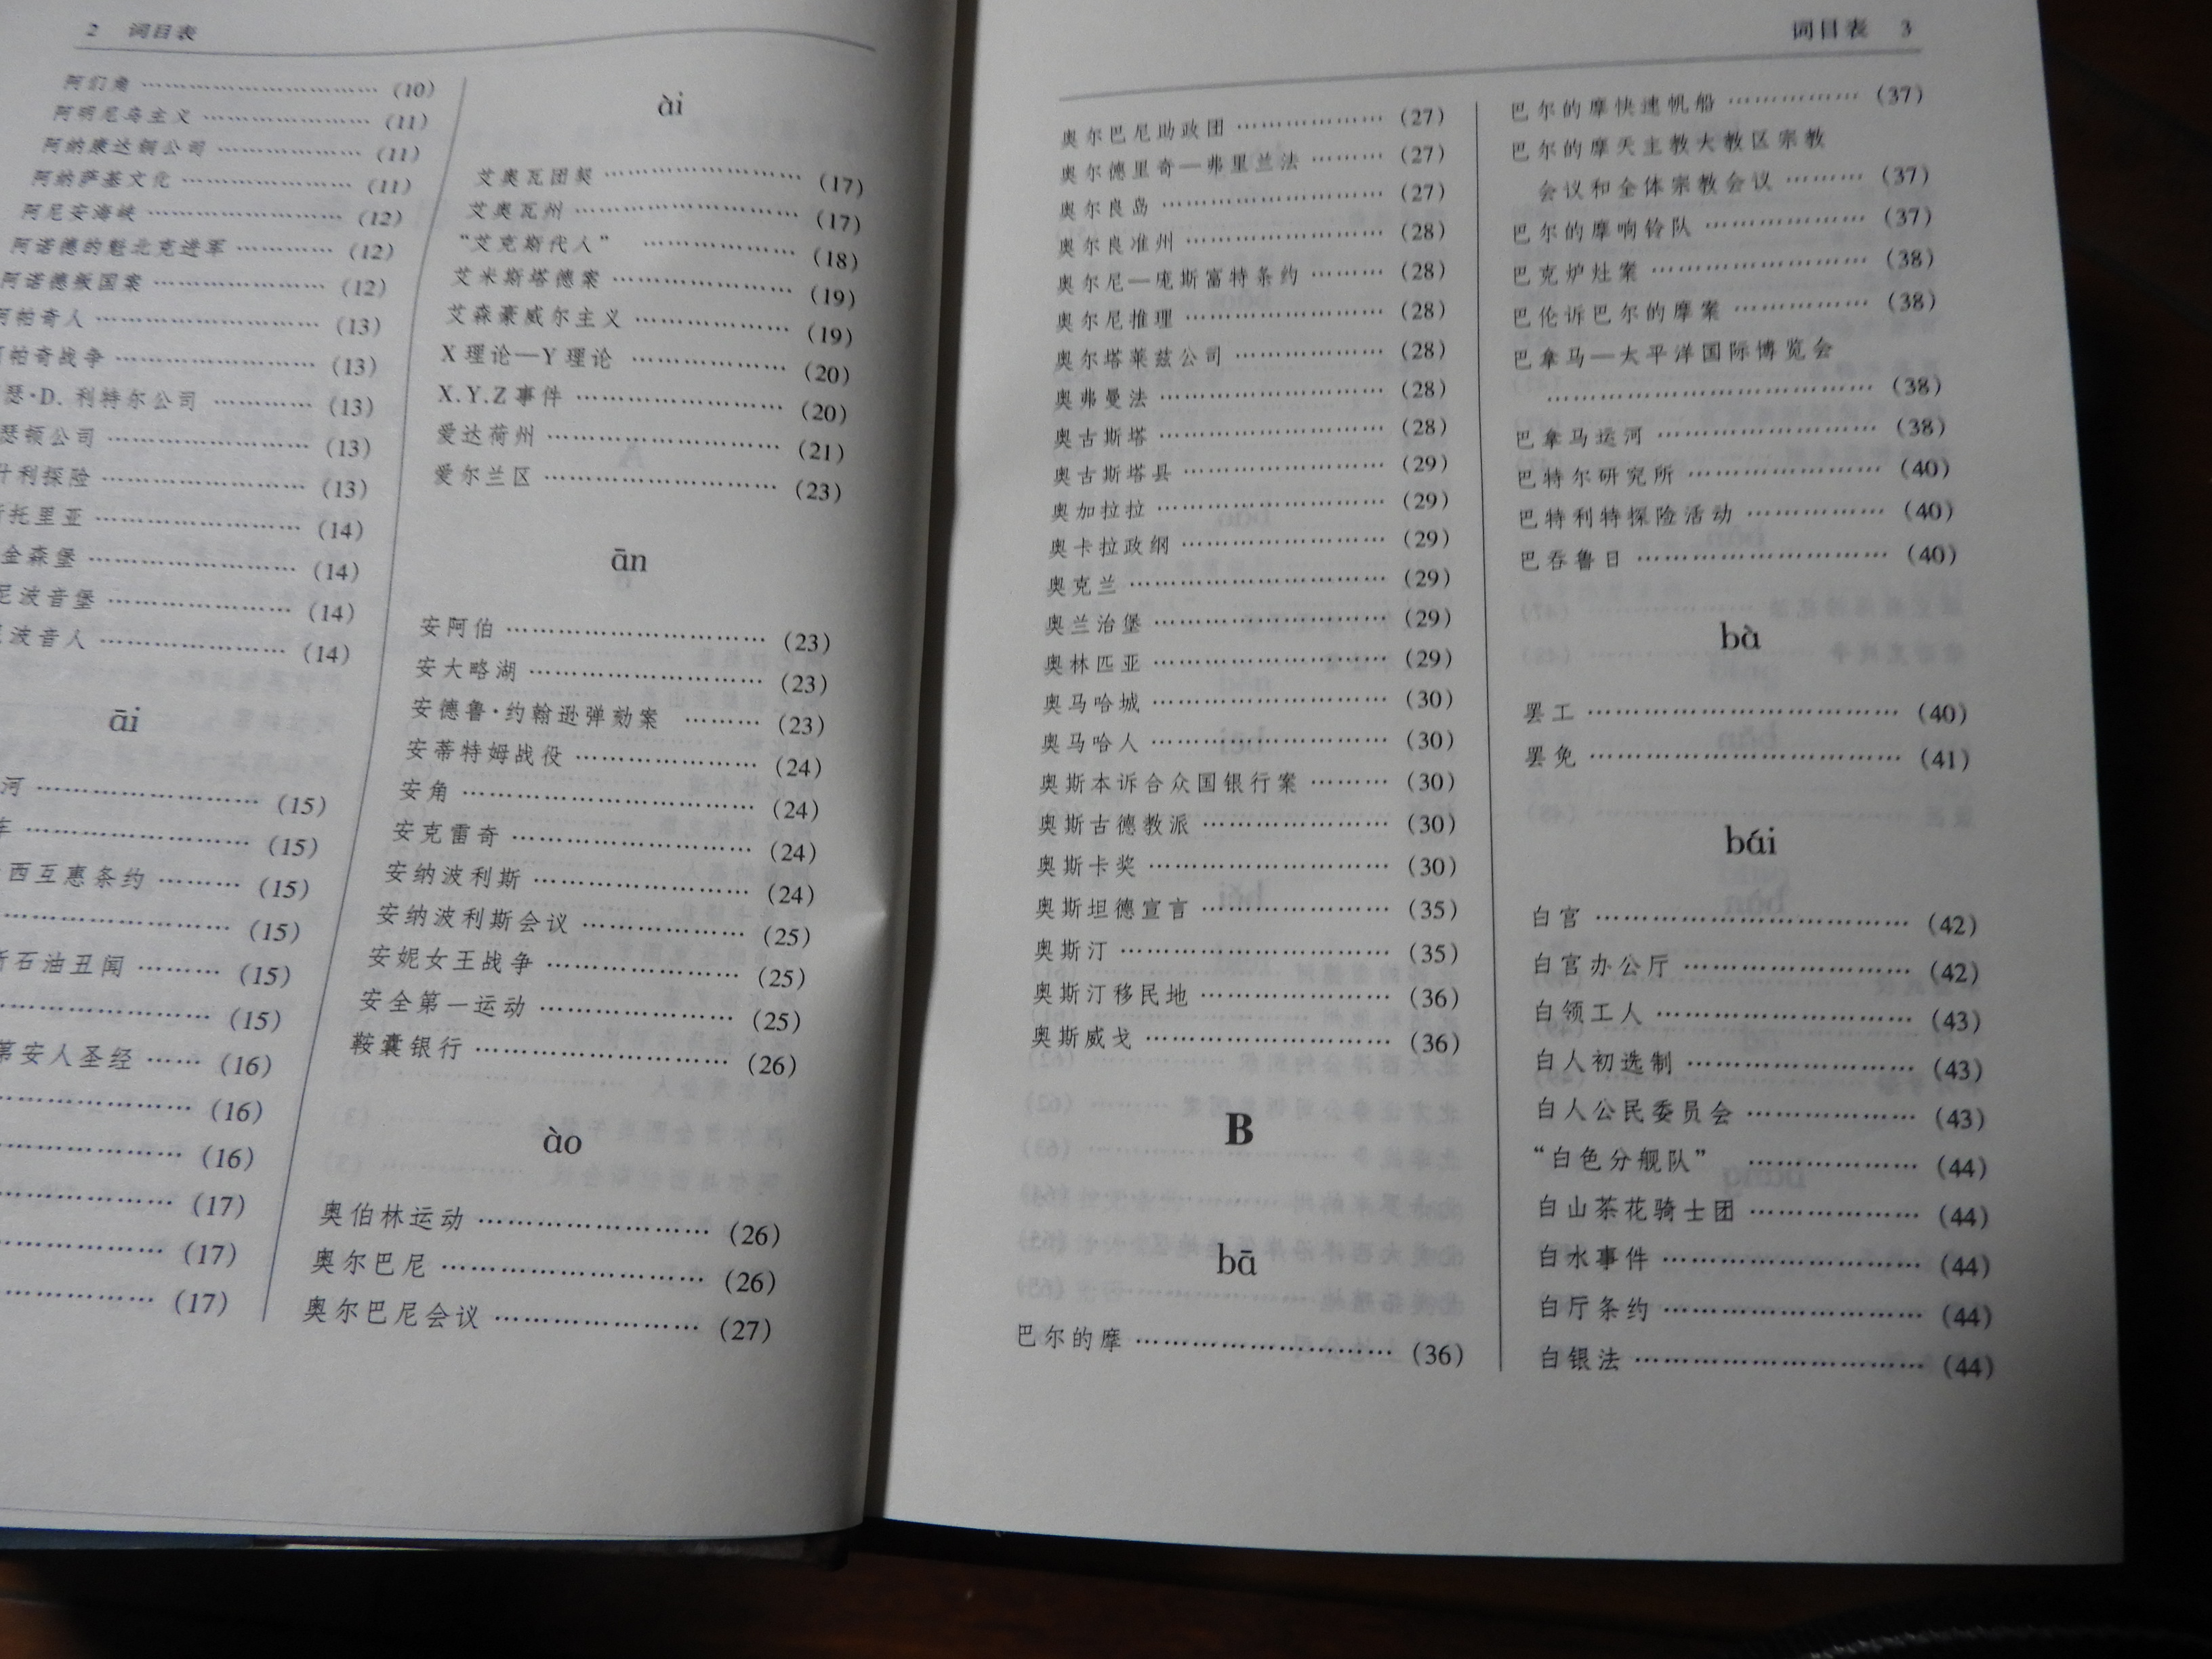 2 词目表
阿们角 (10)
阿明尼乌主义 (11)
阿纳康达铜公司 (11)
阿纳萨基文化 (11)
阿尼安海峡 (12)
阿诺德的魁北克进军 (12)
阿诺德叛国案 (12)
阿帕奇人 (13)
阿帕奇战争 (13)
瑟·D. 利特尔公司 (13)
瑟顿公司 (13)
什利探险 (13)
托里亚 (14)
金森堡 (14)
尼波音堡 (14)
波音人 (14)
āi
河 (15)
车 (15)
西互惠条约 (15)
(15)
石油丑闻 (15)
(15)
第安人圣经 (16)
(16)
(16)
(17)
(17)
(17)
ài
艾奥瓦团契 (17)
艾奥瓦州 (17)
“艾克斯代人” (18)
艾米斯塔德案 (19)
艾森豪威尔主义 (19)
X 理论—Y 理论 (20)
X.Y.Z 事件 (20)
爱达荷州 (21)
爱尔兰区 (23)
ān
安阿伯 (23)
安大略湖 (23)
安德鲁·约翰逊弹劾案 (23)
安蒂特姆战役 (24)
安角 (24)
安克雷奇 (24)
安纳波利斯 (24)
安纳波利斯会议 (25)
安妮女王战争 (25)
安全第一运动 (25)
鞍囊银行 (26)
ào
奥伯林运动 (26)
奥尔巴尼 (26)
奥尔巴尼会议 (27)
词目表 3
奥尔巴尼助政团 (27)
奥尔德里奇—弗里兰法 (27)
奥尔良岛 (27)
奥尔良准州 (28)
奥尔尼—庞斯富特条约 (28)
奥尔尼推理 (28)
奥尔塔莱兹公司 (28)
奥弗曼法 (28)
奥古斯塔 (28)
奥古斯塔县 (29)
奥加拉拉 (29)
奥卡拉政纲 (29)
奥克兰 (29)
奥兰治堡 (29)
奥林匹亚 (29)
奥马哈城 (30)
奥马哈人 (30)
奥斯本诉合众国银行案 (30)
奥斯古德教派 (30)
奥斯卡奖 (30)
奥斯坦德宣言 (35)
奥斯汀 (35)
奥斯汀移民地 (36)
奥斯威戈 (36)
B
bā
巴尔的摩 (36)
巴尔的摩快速帆船 (37)
巴尔的摩天主教大教区宗教
会议和全体宗教会议 (37)
巴尔的摩响铃队 (37)
巴克炉灶案 (38)
巴伦诉巴尔的摩案 (38)
巴拿马—太平洋国际博览会
(38)
巴拿马运河 (38)
巴特尔研究所 (40)
巴特利特探险活动 (40)
巴吞鲁日 (40)
bà
罢工 (40)
罢免 (41)
bái
白宫 (42)
白宫办公厅 (42)
白领工人 (43)
白人初选制 (43)
白人公民委员会 (43)
“白色分舰队” (44)
白山茶花骑士团 (44)
白水事件 (44)
白厅条约 (44)
白银法 (44)